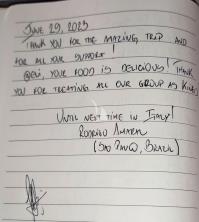 JUNE 29, 2023
THANK YOU FOR THE AMAZING TRIP AND
FOR ALL YOUR SUPPORT!
YOUR FOOD IS DELICIOUS! THANK
YOU FOR TREATING ALL OUR GROUP AS KINGS
UNTIL NEXT TIME IN ITALY!
RODRIGO
(SÃO PAULO, BRAZIL)